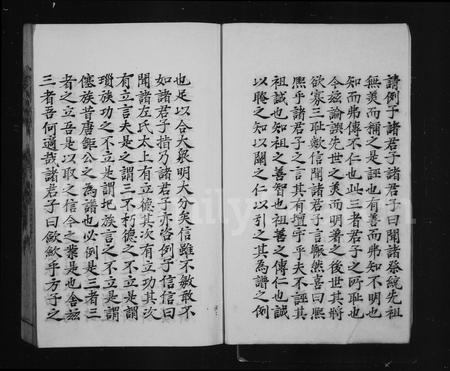 請例子諸君子諸君子曰聞諸祭統先祖
無美而稱之是誣也有善而弗知不明也
知而弗傳不仁也此三者君子之所恥也
今茲論譔先世之美而明著之後世其將
欲寡三恥敢信聞諸君子言輾然喜曰熙
熙乎諸君子之言其有壇宇乎夫不誣其
祖誠也知祖之善智也祖善之傳仁也誠
以晦之知以關之仁以引之其為譜之例
也足以合大眾明大分矣信雖不敏敢不
如諸君子指乃諸君子亦咨例于信信曰
聞諸左氏太上有立德其次有立功其次
有立言夫是之謂三不朽德之不立是謂
瑣族功之不立是謂 族言之不立是謂
傖族昔唐 公之為譜也必例是三者三
者之立吾是以取之信今之業是也舍茲
三者吾何適哉諸君子曰歙歙乎方子之